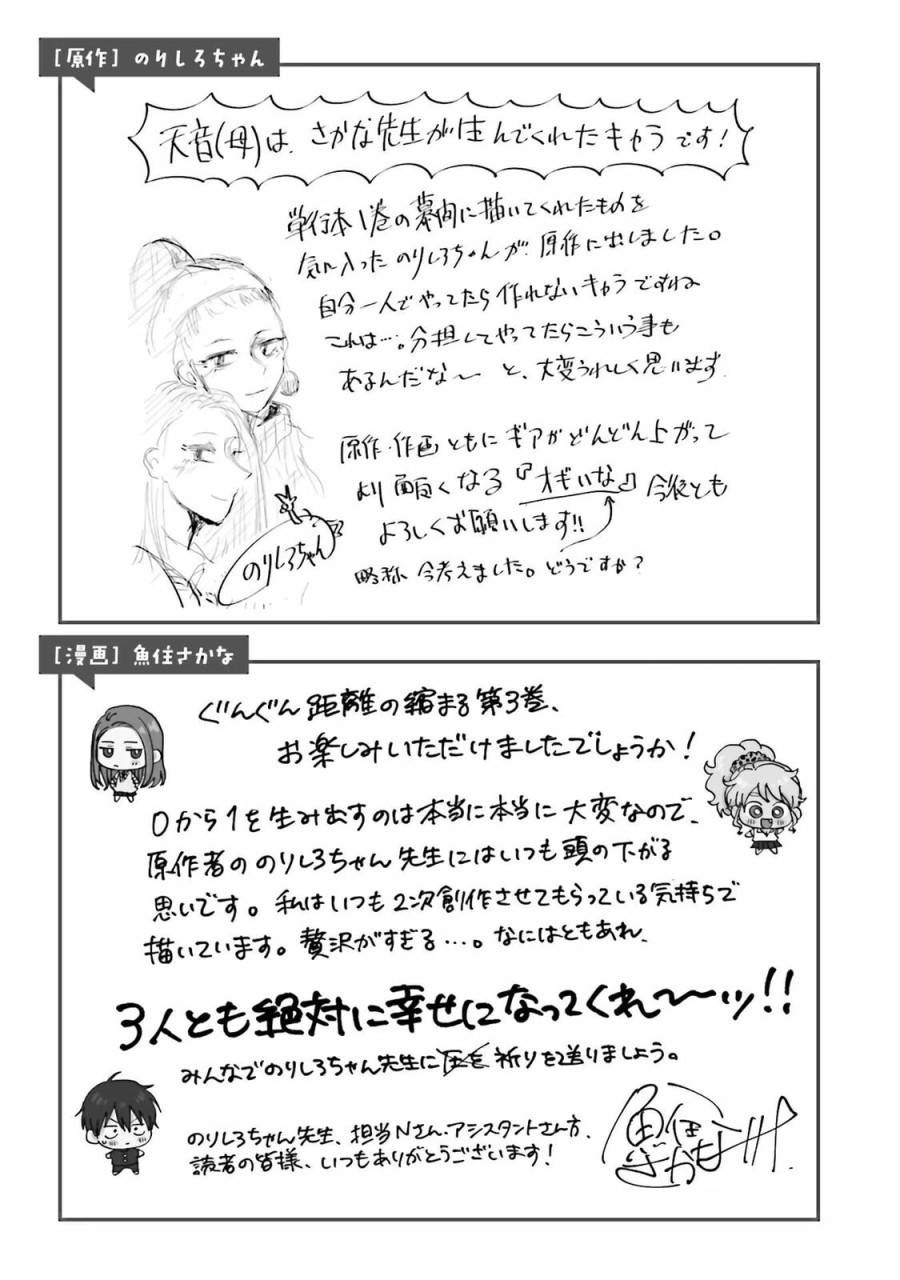 [原作] のりしろちゃん
天音(母)は、さかな先生が生んでくれたキャラです!
単行本1巻の幕間に描いてくれたものを
気に入ったのりしろちゃんが、原作に出しました。
自分一人でやってたら作れないキャラですね
これは…。分担してやってたらこういう事も
あるんだな〜 と、大変うれしく思います
原作・作画ともにギアがどんどん上がって
より面白くなる『オギいな』今後とも
よろしくお願いします!!
のりしろちゃん
略称 今考えました。どうですか?
[漫画] 魚住さかな
ぐんぐん距離の縮まる第3巻、
お楽しみいただけましたでしょうか!
0から1を生み出すのは本当に本当に大変なので、
原作者ののりしろちゃん先生にはいつも頭の下がる
思いです。私はいつも2次創作させてもらっている気持ちで
描いています。贅沢がすぎる…。なにはともあれ、
3人とも絶対に幸せになってくれ〜〜ッ!!
みんなでのりしろちゃん先生に圧を祈りを送りましょう。
のりしろちゃん先生、担当Nさん・アシスタントさん方、
読者の皆様、いつもありがとうございます!
魚住
さかな